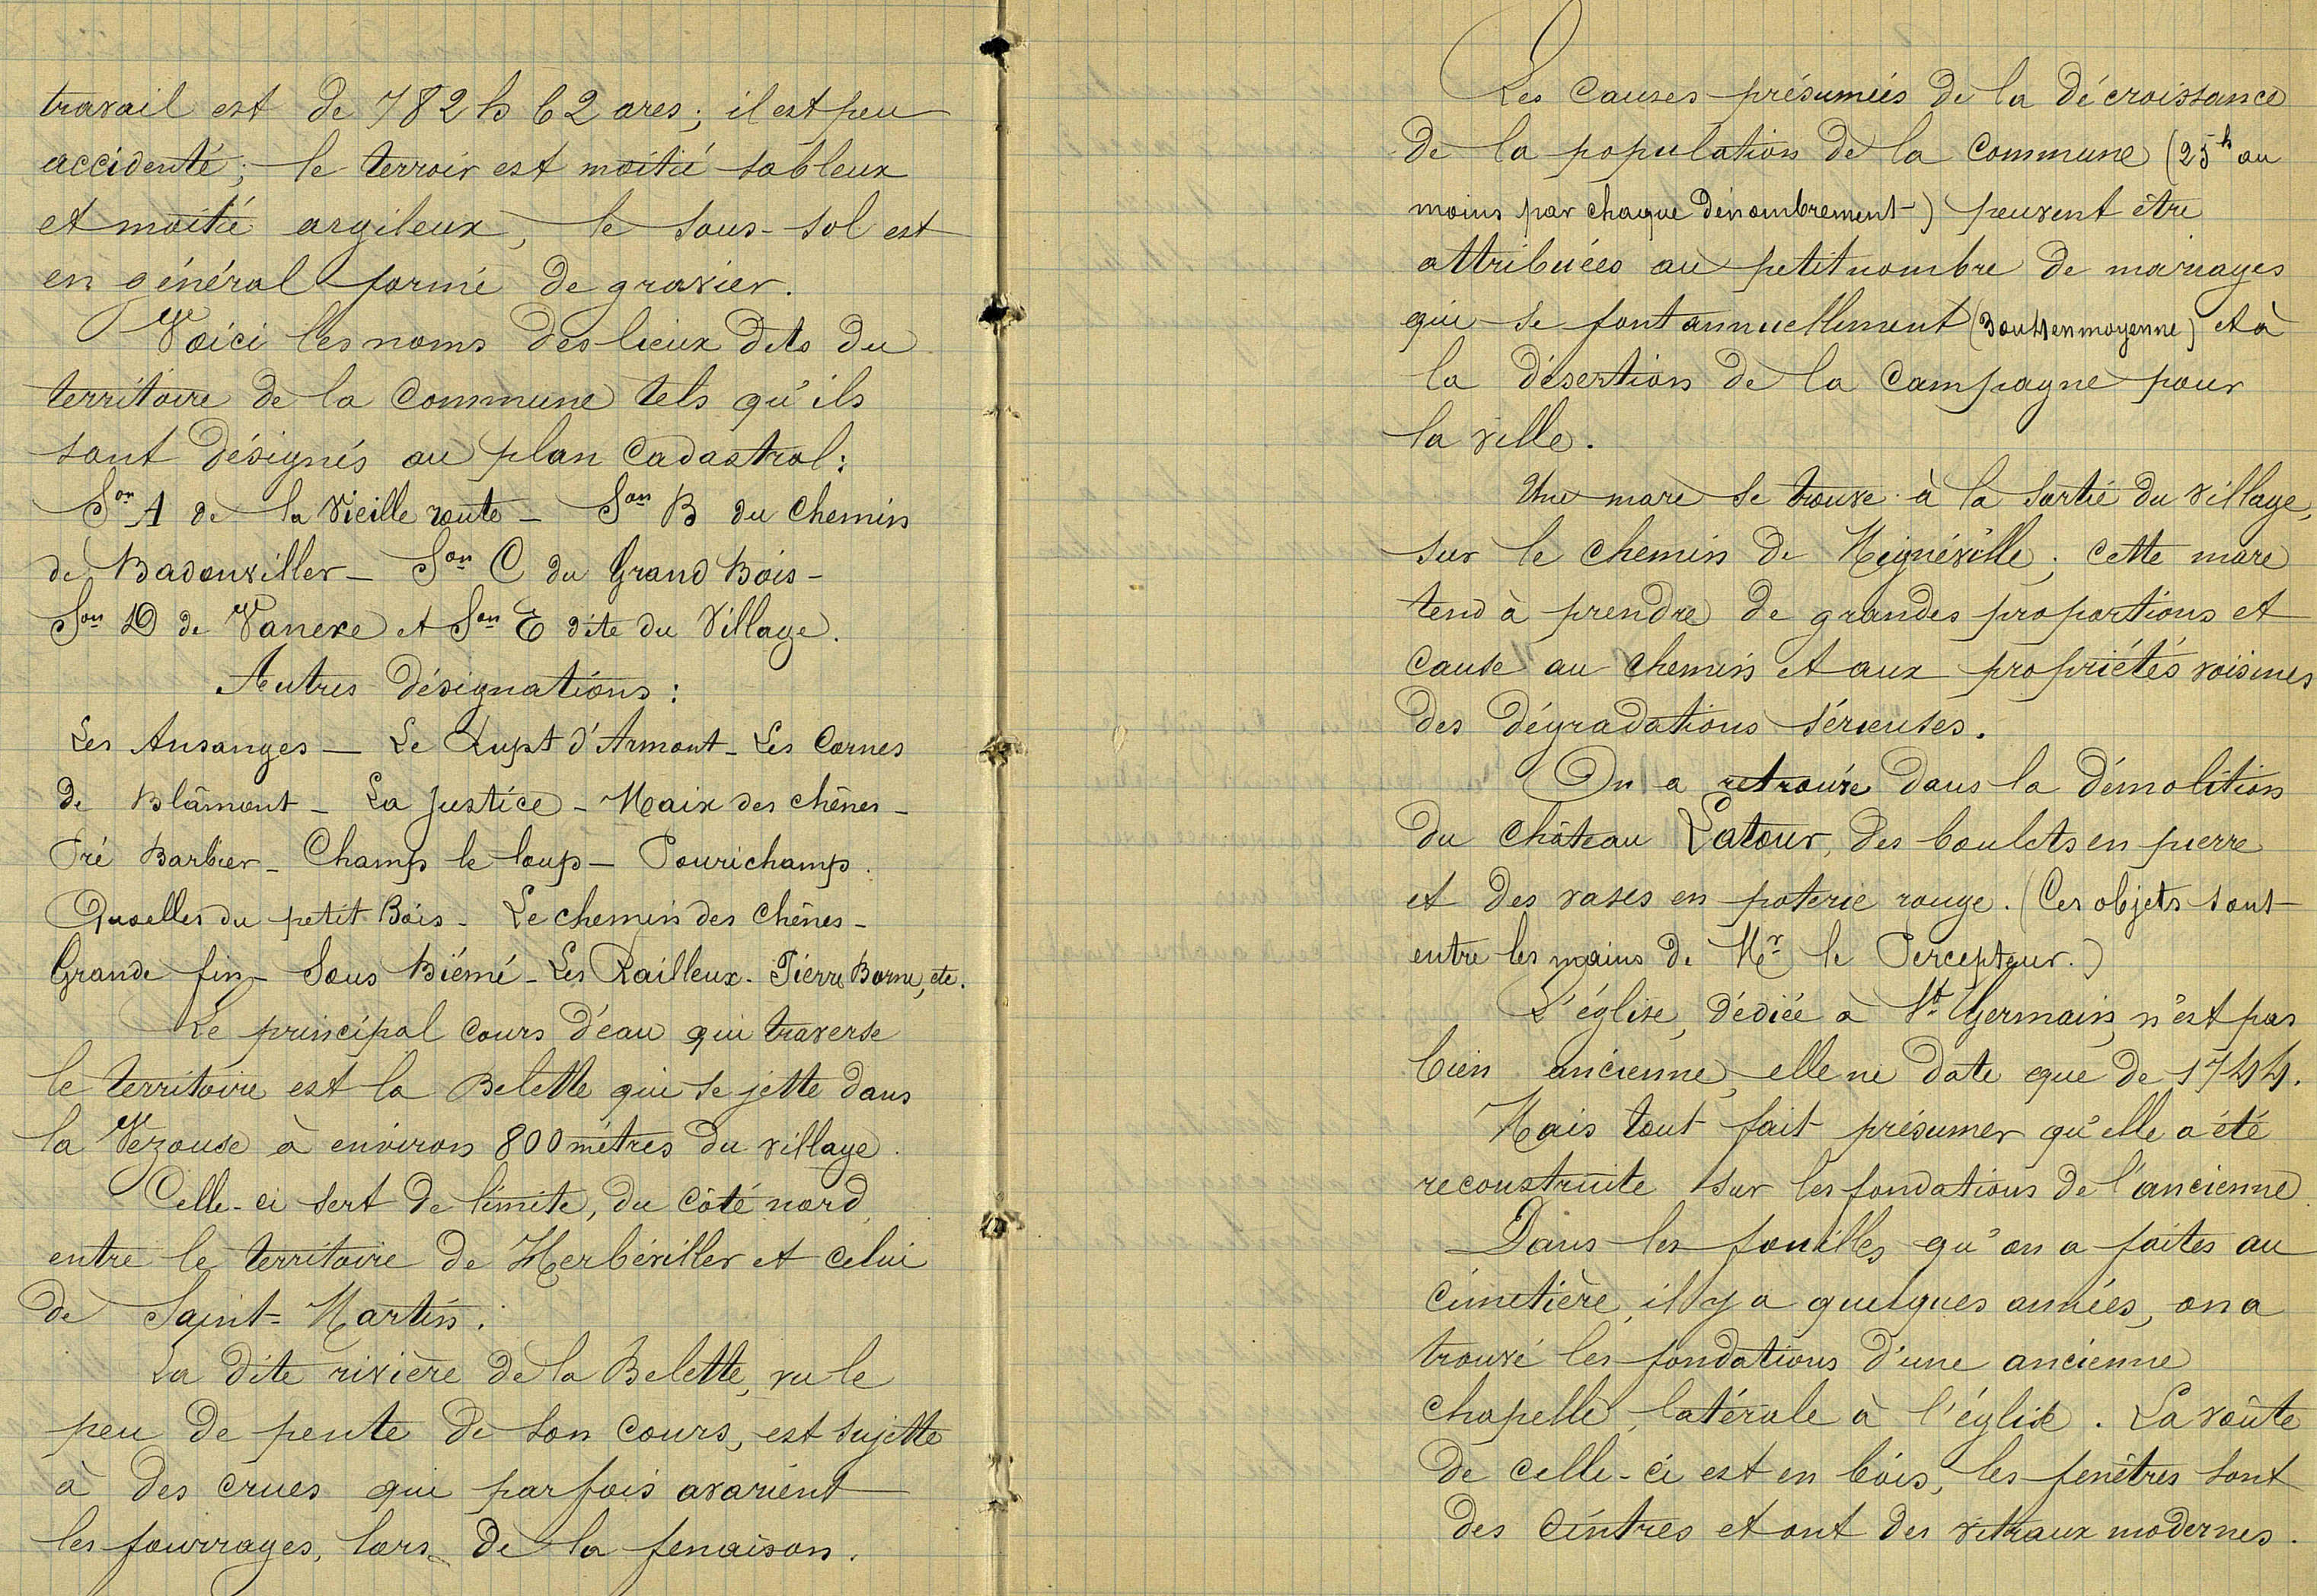 travail est de 782 h 62 ares; il est peu
accidenté; le terroir est moitié sableux
et moitié argileux, le sous-sol est
en général formé de gravier.
Voici les noms des lieux dits du
territoire de la commune tels qu'ils
sont désignés au plan cadastral:
Son A de la Vieille route - Son B du Chemin
de Badonviller - Son C du Grand Bois -
Son D de Vanexe et Son E dite du Village.
Autres désignations:
Les Ansanges - Le Rupt d'Armont - Les Cornes
de Blâmont - La Justice - Maix des chênes -
Pré Barbier - Champ le loup - Pourichamp.
Quselles du petit Bois - Le chemin des Chênes -
Grande fin - Sous Biémé - Les Railleux. Pierre Borne, etc.
Le principal cours d'eau qui traverse
le territoire est la Belette qui se jette dans
la Vezouse à environ 800 mètres du village.
Celle-ci sert de limite, du côté nord,
entre le territoire de Herbéviller et celui
de Saint-Martin.
La dite rivière de la Belette, vu le
peu de pente de son cours, est sujette
à des crues qui parfois avarient
les fourrages, lors de la fenaison.
Les causes présumées de la décroissance
de la population de la commune (25 h au
moins par chaque dénombrement) peuvent être
attribuées au petit nombre de mariages
qui se font annuellement (3 ou 4 en moyenne) et à
la désertion de la campagne pour
la ville.
Une mare se trouve à la sortie du village,
sur le chemin de Mignéville; cette mare
tend à prendre de grandes proportions et
cause au chemin et aux propriétés voisines
des dégradations sérieuses.
On a retrouvé dans la démolition
du château Latour, des boulets en pierre
et des vases en poterie rouge. (Ces objets sont
entre les mains de Mr le Percepteur.)
L'église, dédiée à St Germain, n'est pas
bien ancienne, elle ne date que de 1744.
Mais tout fait présumer qu'elle a été
reconstruite sur les fondations de l'ancienne.
Dans les fouilles qu'on a faites au
cimetière, il y a quelques années, on a
trouvé les fondations d'une ancienne
chapelle, latérale à l'église. La voûte
de celle-ci est en bois, les fenêtres sont
des cintres et ont des vitraux modernes.